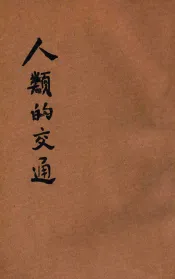 人類的交通